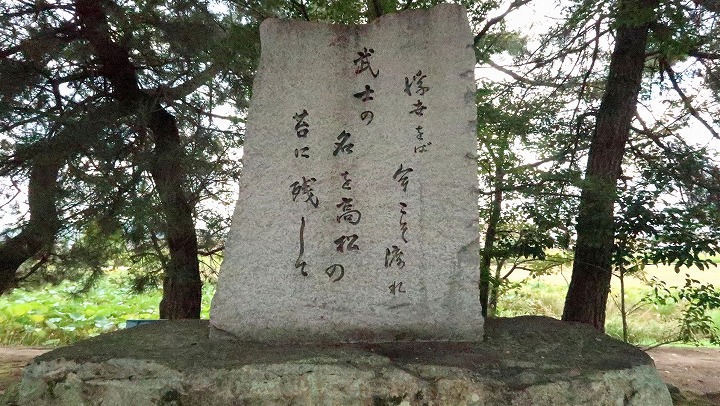 浮世をば 今こそ渡れ
武士の 名を高松の
苔に残して